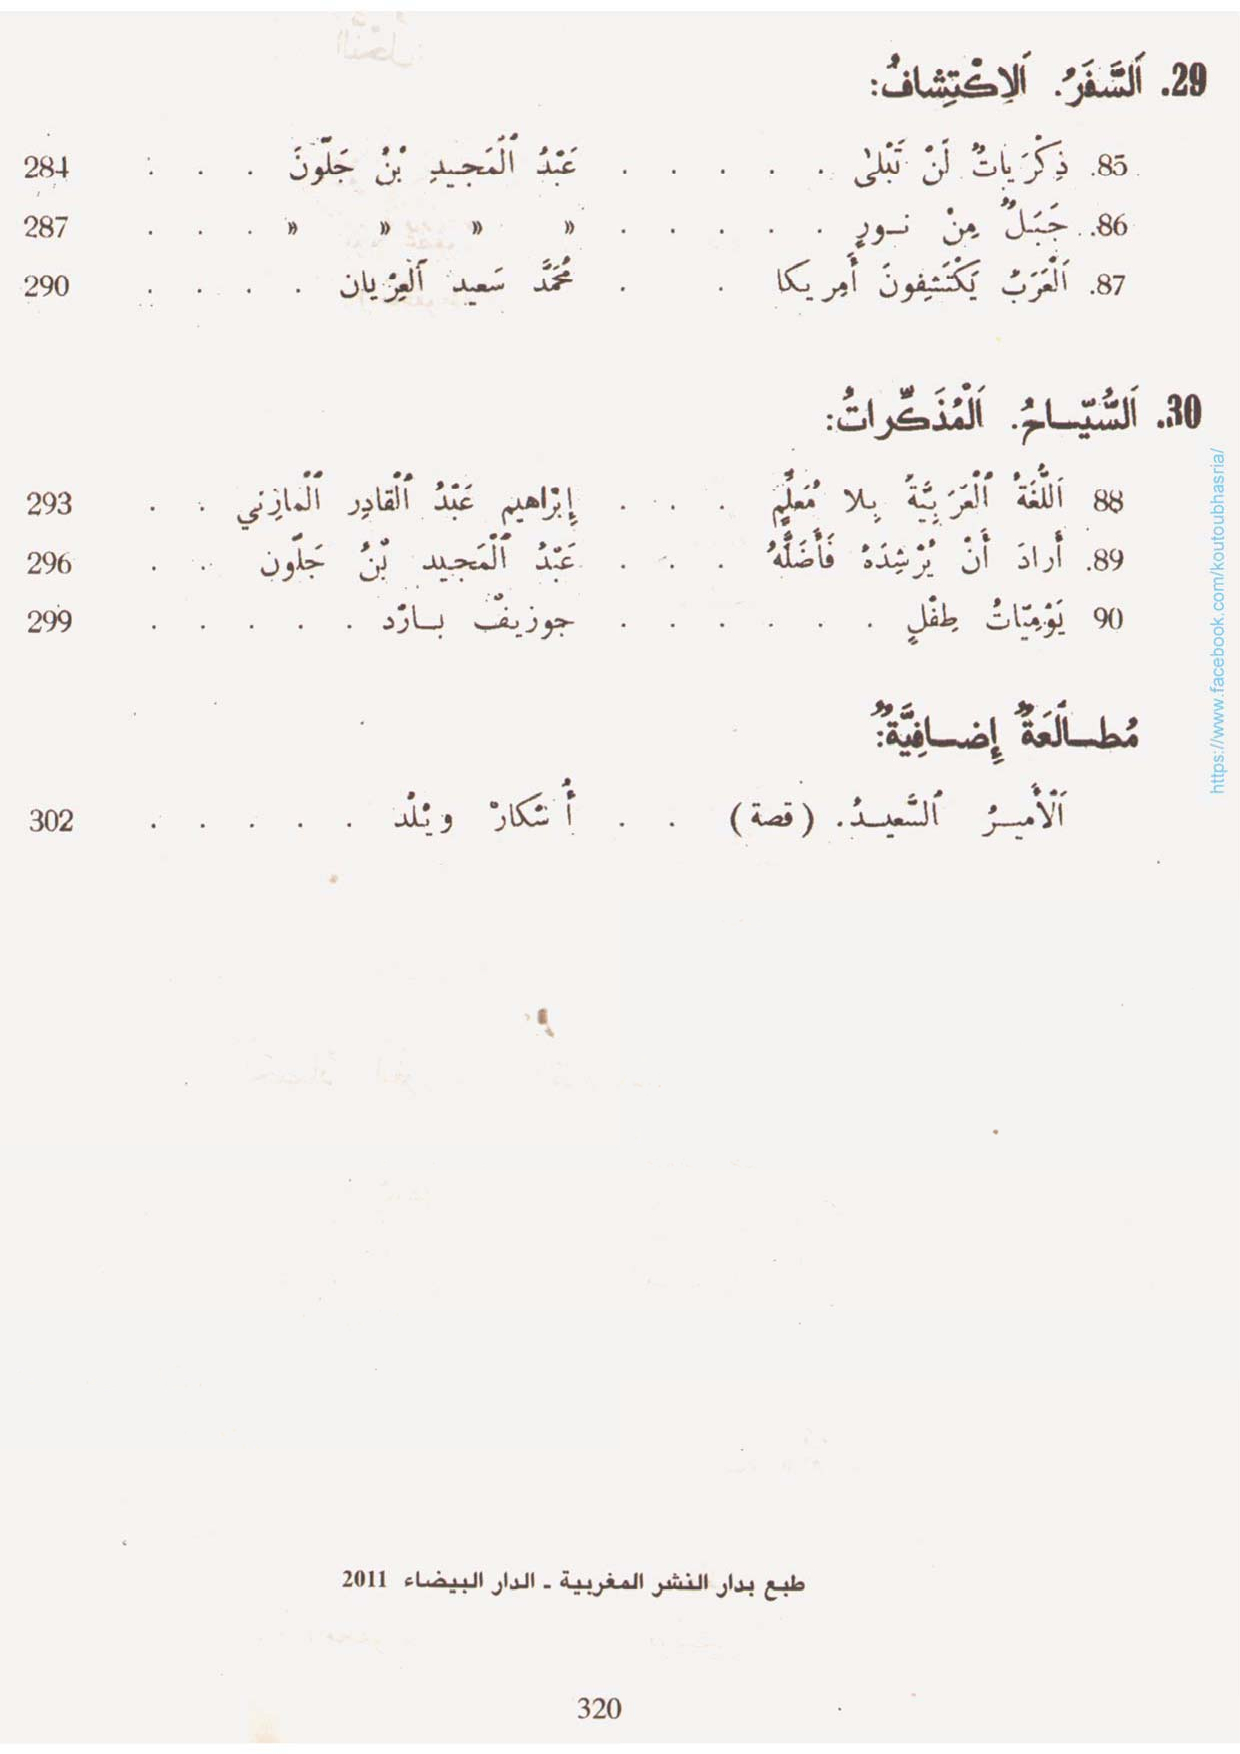 29. اَلسَّفَرُ. اَلِاكْتِشافُ:
85. ذِكْرَياتٌ لَنْ تَبْلىٰ . . . . . عَبْدُ ٱلْمَجيدِ بْنُ جَلّونَ . . . 284
86. جَبَلٌ مِنْ نـورٍ . . . . . » » » » . . . 287
87. اَلْعَرَبُ يَكْتَشِفونَ أَمِريكا . . مُحَمَّد سَعيد ٱلْعِرْيان . . . . 290
30. اَلسُّيّـاحُ. اَلْمُذَكِّراتُ:
88 اَللُّغَةُ ٱلْعَرَبِيَّةُ بِلا مُعَلِّمٍ . . . إِبْراهيم عَبْدُ ٱلْقادِرِ ٱلْمازِني . . 293
89. أَرادَ أَنْ يُرْشِدَهُ فَأَضَلَّهُ . . . عَبْدُ ٱلْمَجيد بْنُ جَلّون . . 296
90 يَوْمِيّاتُ طِفْلٍ . . . . . . جوزيفْ بـارْد . . . . . 299
مُطـالَعَةٌ إِضـافِيَّةٌ:
اَلْأَميـرُ ٱلسَّعيـدُ. (قصة) . . أُسْكارْ ويْلْد . . . . . 302
طبع بدار النشر المغربية ـ الدار البيضاء 2011
320
https://www.facebook.com/koutoubhasria/